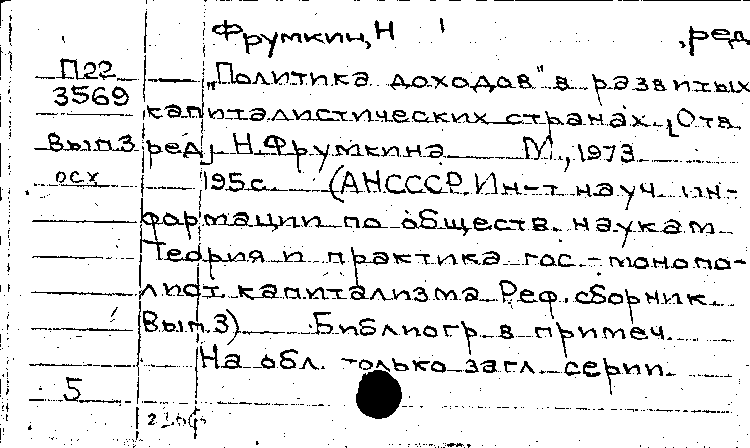 Фрумкин, Н ,ред
П22 "Политика доходов" в развитых
3569 капиталистических странах. [Отв.
Вып.3 ред] Н.Фрумкина М., 1973.
осх 195с. (АНСССР. Ин-т науч. ин-
формации по обществ. наукам
Теория и практика гос.-монопо-
лист. капитализма. Реф. сборник.
Вып.3) Библиогр. в примеч.
На обл. только загл. серии.
5